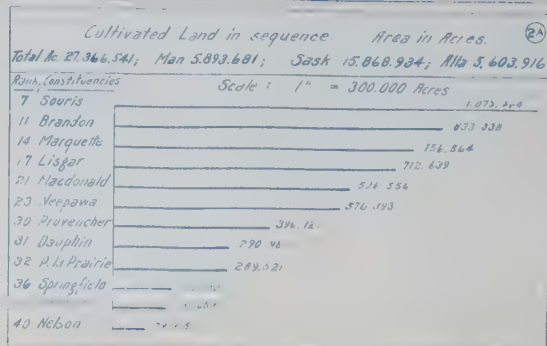 Cultivated Land in sequence. Area in Acres. 2A
Total Ac. 27.366.541; Man 5.893.681; Sask 15.868.934; Alta 5.603.916
Rank, Constituencies Scale : 1" = 300.000 Acres
7 Souris
11 Brandon 833 338
14 Marquette 756.564
17 Lisgar 712.639
21 Macdonald
23 Neepawa 576.193
30 Provencher
31 Dauphin
32 P. la Prairie 289.521
36 Springfield
40 Nelson